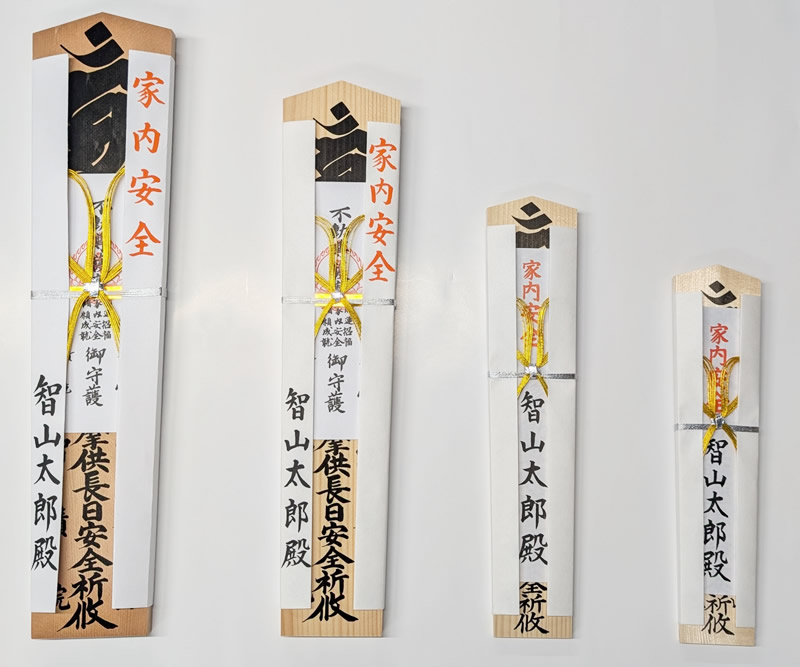 家内安全
御守護
智山太郎殿
供長日安全祈攸
家内安全
不
御守護
智山太郎殿
供長日安全祈攸
家内安全
智山太郎殿
全祈攸
家内安全
智山太郎殿
祈攸